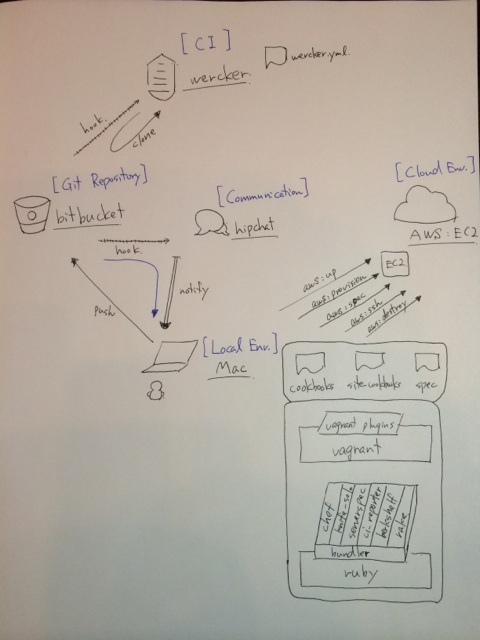 [CI]
wercker
wercker.yml
hook
clone
[Git Repository]
bitbucket
[Communication]
hipchat
[Cloud Env.]
AWS:EC2
hook
notify
push
EC2
aws:up
aws:provision
aws:spec
aws:ssh
aws:destroy
[Local Env.]
Mac
cookbooks
site-cookbooks
spec
vagrant plugins
vagrant
chef
knife-solo
serverspec
ci-reporter
berkshelf
rake
bundler
ruby